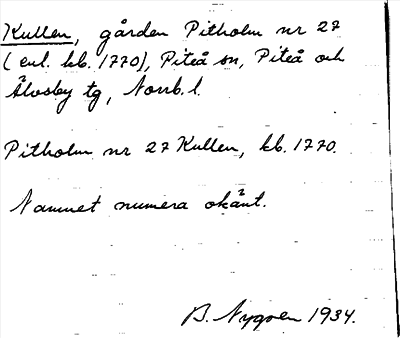 Kullen, gården Pitholm nr 27
(enl. kb. 1770), Piteå sn, Piteå och
Älvsby tg, Norrb. l.
Pitholm nr 27 Kullen, kb. 1770.
Namnet numera okänt.
B. Nygren 1934.